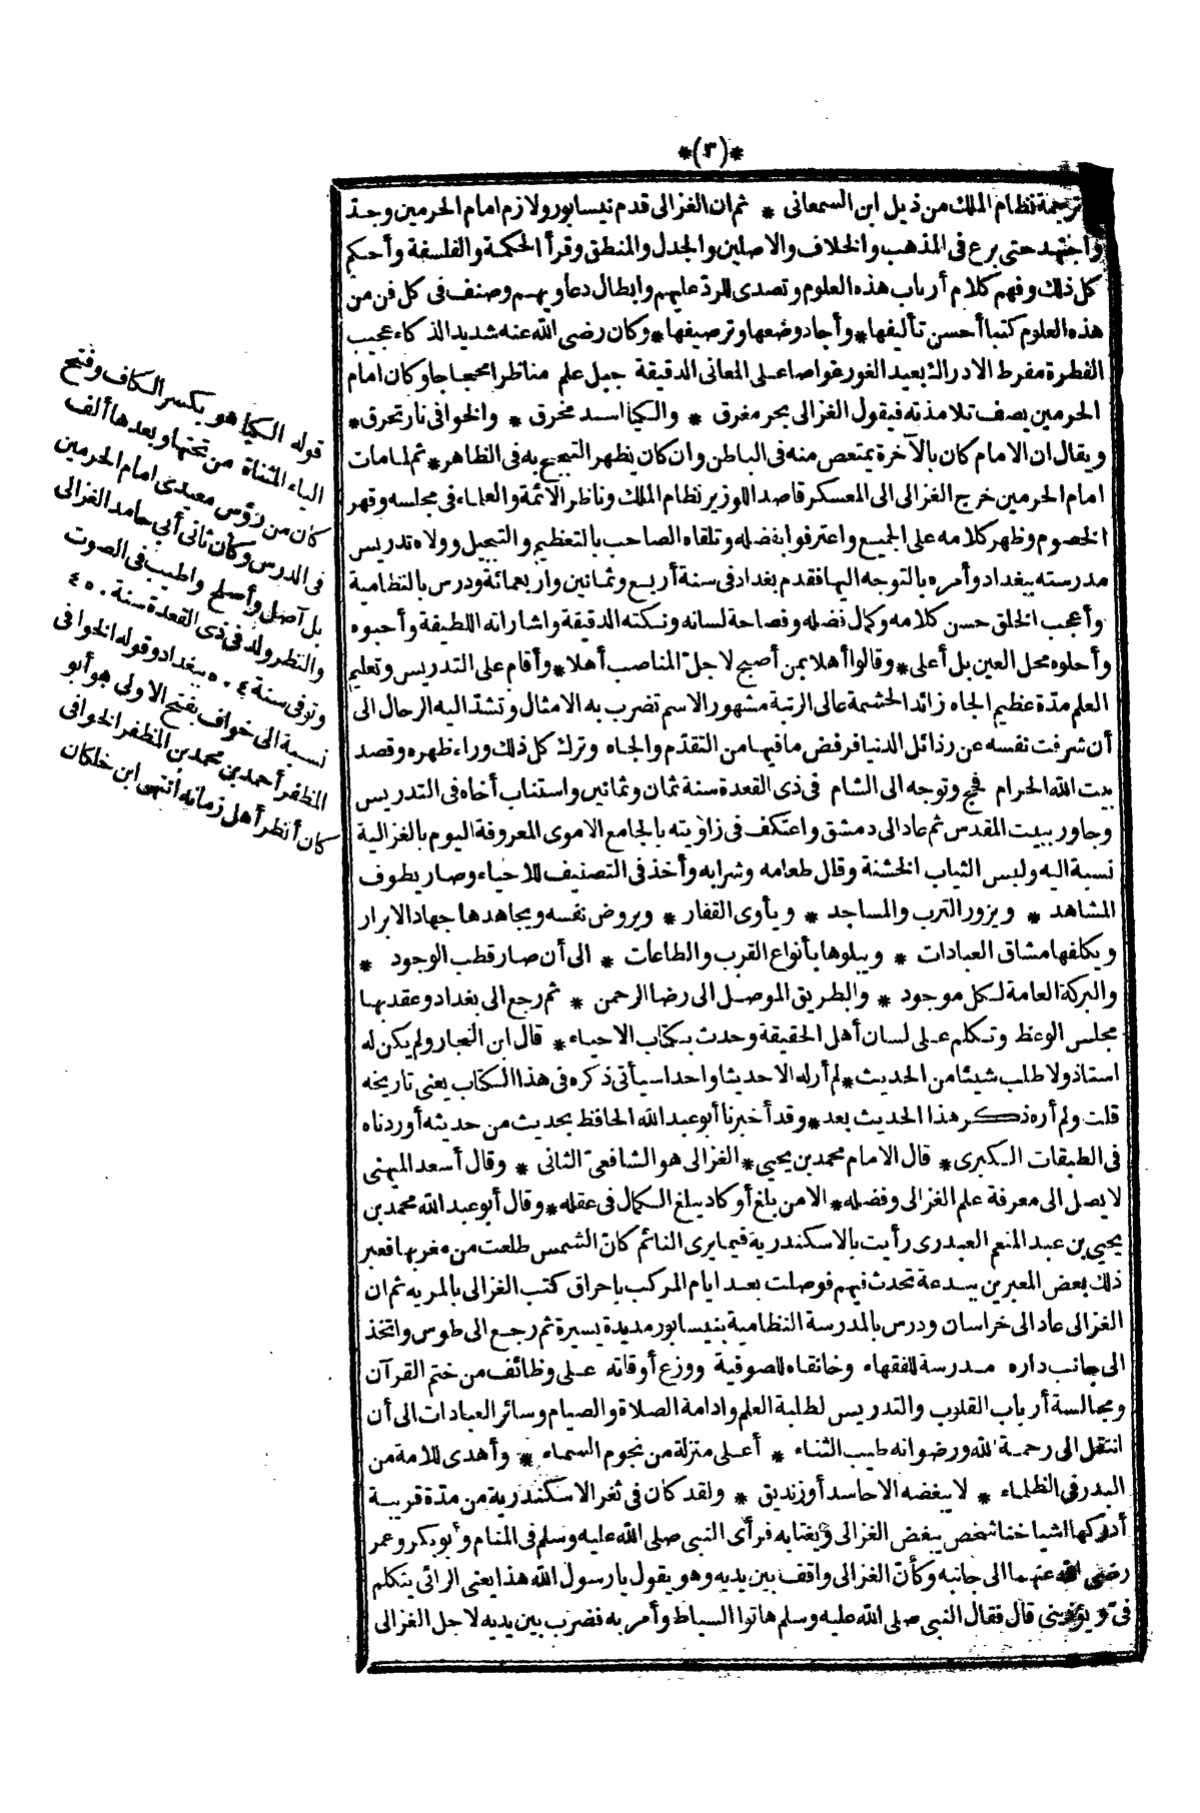 *(٣)*
ترجمة نظام الملك من ذيل ابن السمعانى * ثم ان الغزالى قدم نيسابور ولازم امام الحرمين وجد
واجتهد حتى برع فى المذهب والخلاف والاصلين والجدل والمنطق وقرأ الحكمة والفلسفة وأحكم
كل ذلك وفهم كلام أرباب هذه العلوم وتصدى للرد عليهم وابطال دعاويهم وصنف فى كل فن من
هذه العلوم كتبا أحسن تأليفها * وأجاد وضعها وترصيفها * وكان رضى الله عنه شديد الذكاء عجيب
الفطرة مفرط الادراك بعيد الغور غواصا على المعانى الدقيقة جبل علم مناظرا محجاجا وكان امام
الحرمين يصف تلامذته فيقول الغزالى بحر مغرق * والكيا اسد مخرق * والخوافى نار تحرق *
ويقال ان الامام كان بالآخرة يمتعض منه فى الباطن وان كان يظهر التبجح به فى الظاهر * ثم لما مات
امام الحرمين خرج الغزالى الى المعسكر قاصدا للوزير نظام الملك وناظر الائمة والعلماء فى مجلسه وقهر
الخصوم وظهر كلامه على الجميع واعترفوا بفضله وتلقاه الصاحب بالتعظيم والتبجيل وولاه تدريس
مدرسته ببغداد وأمره بالتوجه اليها فقدم بغداد فى سنة أربع وثمانين واربعمائة ودرس بالنظامية
وأعجب الخلق حسن كلامه وكمال فضله وفصاحة لسانه ونكته الدقيقة واشاراته اللطيفة وأحبوه
وأحلوه محل العين بل أعلى * وقالوا أهلا بمن أصبح لاجل المناصب أهلا * وأقام على التدريس وتعليم
العلم مدّة عظيم الجاه زائد الحشمة عالى الرتبة مشهور الاسم تضرب به الامثال وتشدّ اليه الرحال الى
أن شرفت نفسه عن رذائل الدنيا فرفض ما فيها من التقدّم والجاه وترك كل ذلك وراء ظهره وقصد
بيت الله الحرام فحج وتوجه الى الشام فى ذى القعدة سنة ثمان وثمانين واستناب أخاه فى التدريس
وجاور ببيت المقدس ثم عاد الى دمشق واعتكف فى زاويته بالجامع الاموى المعروفة اليوم بالغزالية
نسبة اليه ولبس الثياب الخشنة وقلل طعامه وشرابه وأخذ فى التصنيف للاحياء وصار يطوف
المشاهد * ويزور الترب والمساجد * ويأوى القفار * ويروض نفسه ويجاهدها جهاد الابرار
ويكلفها مشاق العبادات * ويبلوها بأنواع القرب والطاعات * الى أن صار قطب الوجود *
والبركة العامة لكل موجود * والطريق الموصل الى رضا الرحمن * ثم رجع الى بغداد وعقد بها
مجلس الوعظ وتكلم على لسان أهل الحقيقة وحدث بكتاب الاحياء * قال ابن النجار ولم يكن له
استاذ ولا طلب شيئا من الحديث * لم أر له الا حديثا واحدا سيأتى ذكره فى هذا الكتاب يعنى تاريخه
قلت ولم أره ذكر هذا الحديث بعد * وقد أخبرنا أبو عبد الله الحافظ بحديث من حديثه أوردناه
فى الطبقات الكبرى * قال الامام محمد بن يحيى * الغزالى هو الشافعىّ الثانى * وقال أسعد الميهنى
لا يصل الى معرفة علم الغزالى وفضله * الا من بلغ أو كاد يبلغ الكمال فى عقله * وقال أبو عبد الله محمد بن
يحيى بن عبد المنعم العبدرى رأيت بالاسكندرية فيما يرى النائم كانّ الشمس طلعت من مغربها فعبر
ذلك بعض المعبرين ببدعة تحدث فيهم فوصلت بعد ايام المركب باحراق كتب الغزالى بالمريه ثم ان
الغزالى عاد الى خراسان ودرس بالمدرسة النظامية بنيسابور مديدة يسيرة ثم رجع الى طوس واتخذ
الى جانب داره مدرسة للفقهاء وخانقاه للصوفية ووزع أوقاته على وظائف من ختم القرآن
ومجالسة أرباب القلوب والتدريس لطلبة العلم وادامة الصلاة والصيام وسائر العبادات الى أن
انتقل الى رحمة الله ورضوانه طيب الثناء * أعلى منزلة من نجوم السماء * وأهدى للامة من
البدر فى الظلماء * لا يبغضه الا حاسد أو زنديق * ولقد كان فى ثغر الاسكندرية من مدّة قريبة
أدركها اشياخنا شخص يبغض الغزالى ويغتابه فرأى النبى صلى الله عليه وسلم فى المنام وأبو بكر وعمر
رضى الله عنهما الى جانبه وكأنّ الغزالى واقف بين يديه وهو يقول يا رسول الله هذا يعنى الرائى يتكلم
فىّ ويؤذينى قال فقال النبى صلى الله عليه وسلم هاتوا السياط وأمر به فضرب بين يديه لاجل الغزالى
قوله الكيا هو بكسر الكاف وفتح
الياء المثناة من تحتها وبعدها ألف
كان من رؤس معيدى امام الحرمين
فى الدرس وكان ثانى أبى حامد الغزالى
بل آصل وأصلح واطيب فى الصوت
والنظر ولد فى ذى القعدة سنة ٤٥٠
وتوفى سنة ٥٠٤ ببغداد وقوله الخوافى
نسبة الى خواف بفتح الاولى هو أبو
المظفر أحمد بن محمد بن المظفر الخوافى
كان أنظر أهل زمانه أنتهى ابن خلكان